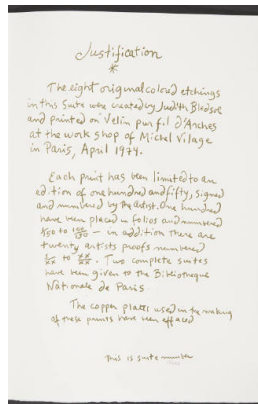 Justification
*
The eight original colored etchings
in this Suite were created by Judith Bledsoe
and printed on Velin pur fil d'Arches
at the work shop of Michel Vilage
in Paris, April 1974.
Each print has been limited to an
edition of one hundred and fifty, signed
and numbered by the artist. One hundred
have been placed in folios and numbered
to — in addition there are
twenty artists proofs numbered
to XX/XX. Two complete suites
have been given to the Bibliotheque
Nationale de Paris
The copper plates used in the making
of these prints have been effaced
This is suite number